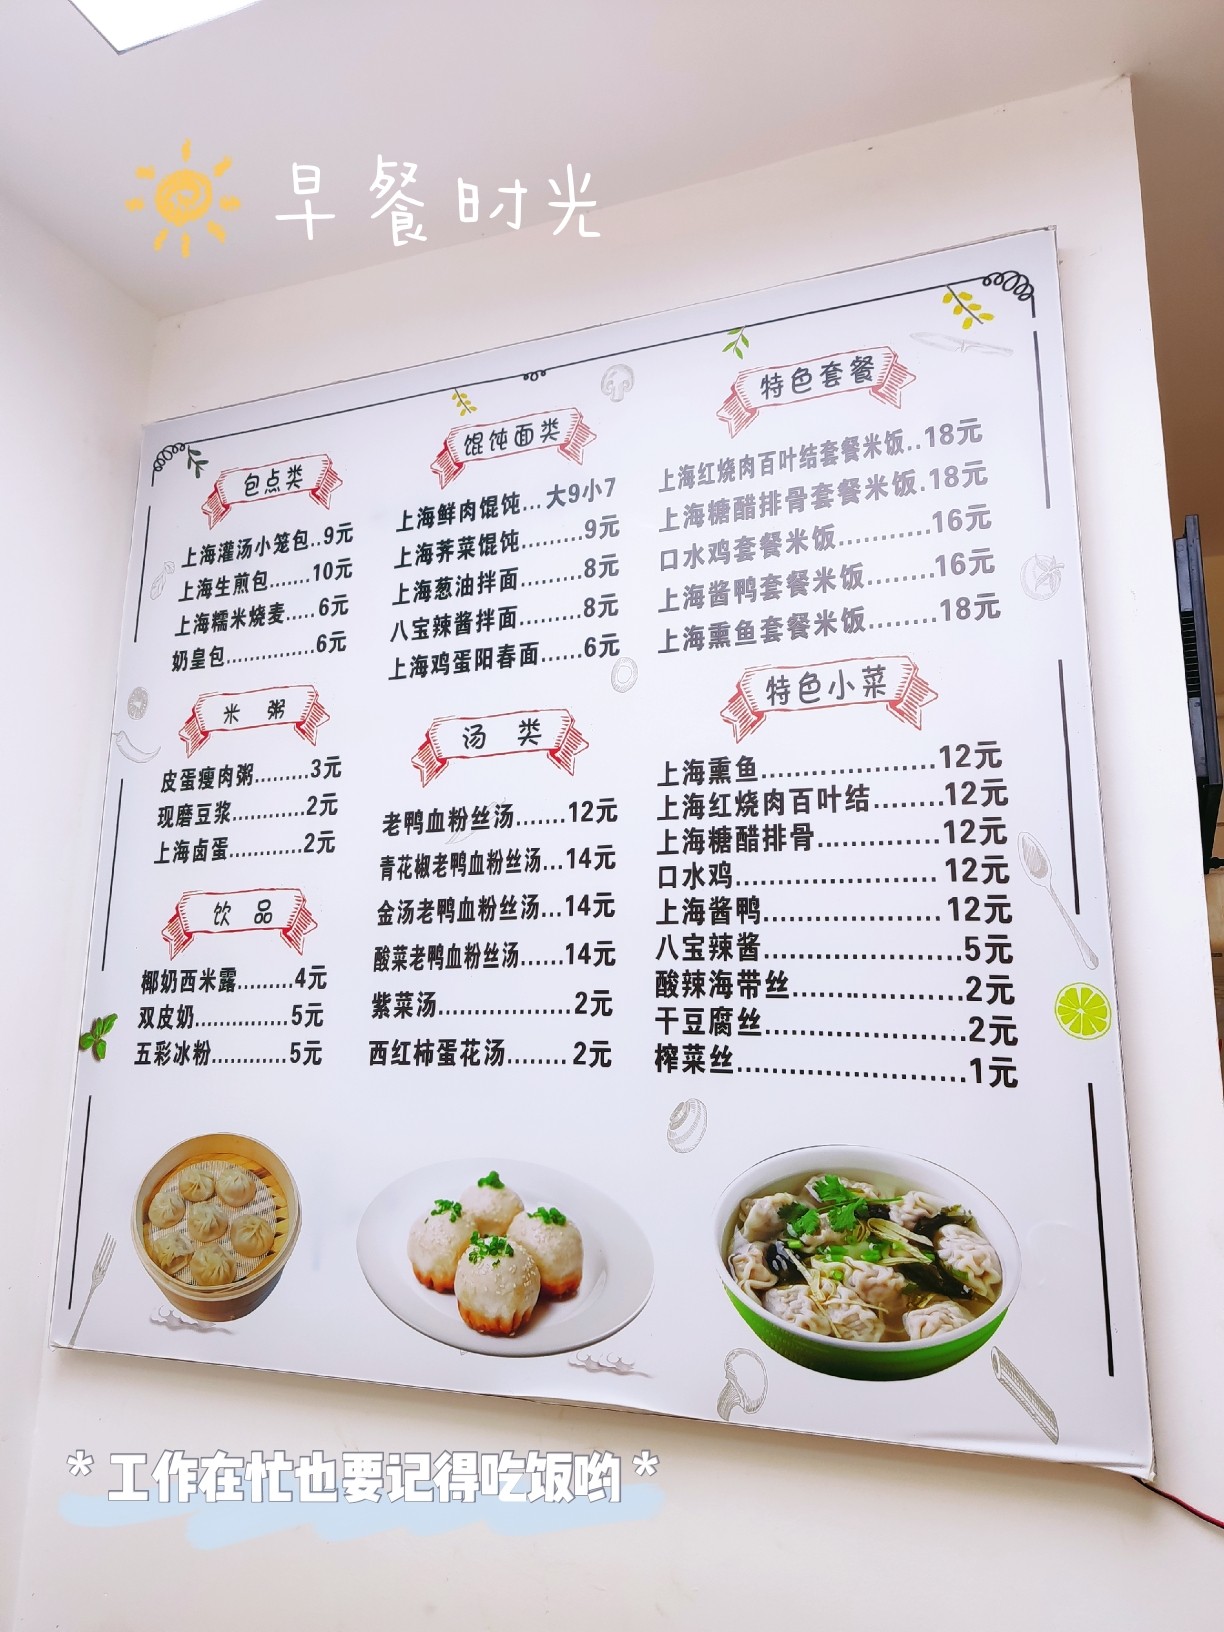 早餐时光
包点类
上海灌汤小笼包..9元
上海生煎包.......10元
上海糯米烧麦.....6元
奶皇包...............6元
米 粥
皮蛋瘦肉粥.........3元
现磨豆浆............2元
上海卤蛋............2元
饮 品
椰奶西米露.........4元
双皮奶...............5元
五彩冰粉............5元
馄饨面类
上海鲜肉馄饨...大9小7
上海荠菜馄饨.........9元
上海葱油拌面.........8元
八宝辣酱拌面.........8元
上海鸡蛋阳春面......6元
汤 类
老鸭血粉丝汤.......12元
青花椒老鸭血粉丝汤...14元
金汤老鸭血粉丝汤...14元
酸菜老鸭血粉丝汤......14元
紫菜汤..................2元
西红柿蛋花汤........2元
特色套餐
上海红烧肉百叶结套餐米饭..18元
上海糖醋排骨套餐米饭.18元
口水鸡套餐米饭............16元
上海酱鸭套餐米饭........16元
上海熏鱼套餐米饭........18元
特色小菜
上海熏鱼.....................12元
上海红烧肉百叶结........12元
上海糖醋排骨...............12元
口水鸡........................12元
上海酱鸭.....................12元
八宝辣酱........................5元
酸辣海带丝.....................2元
干豆腐丝........................2元
榨菜丝...........................1元
*工作在忙也要记得吃饭哟*